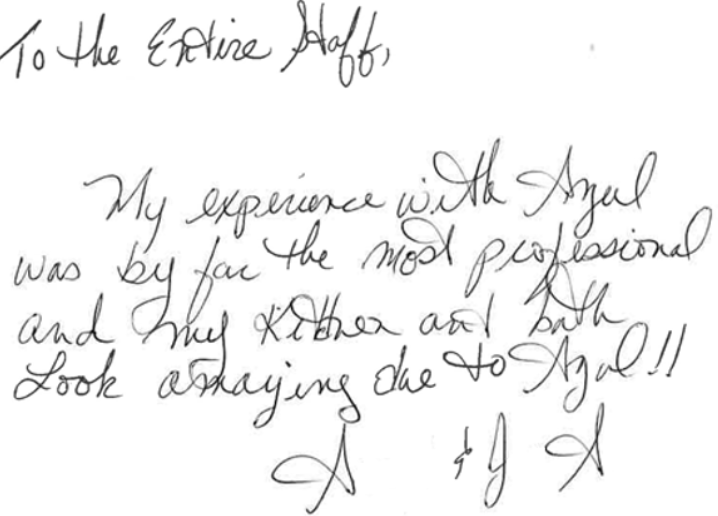 To the Entire Staff,
My experience with Azul
was by far the most professional
and my Kitchen and bath
Look amazing due to Azul!!
A & J A